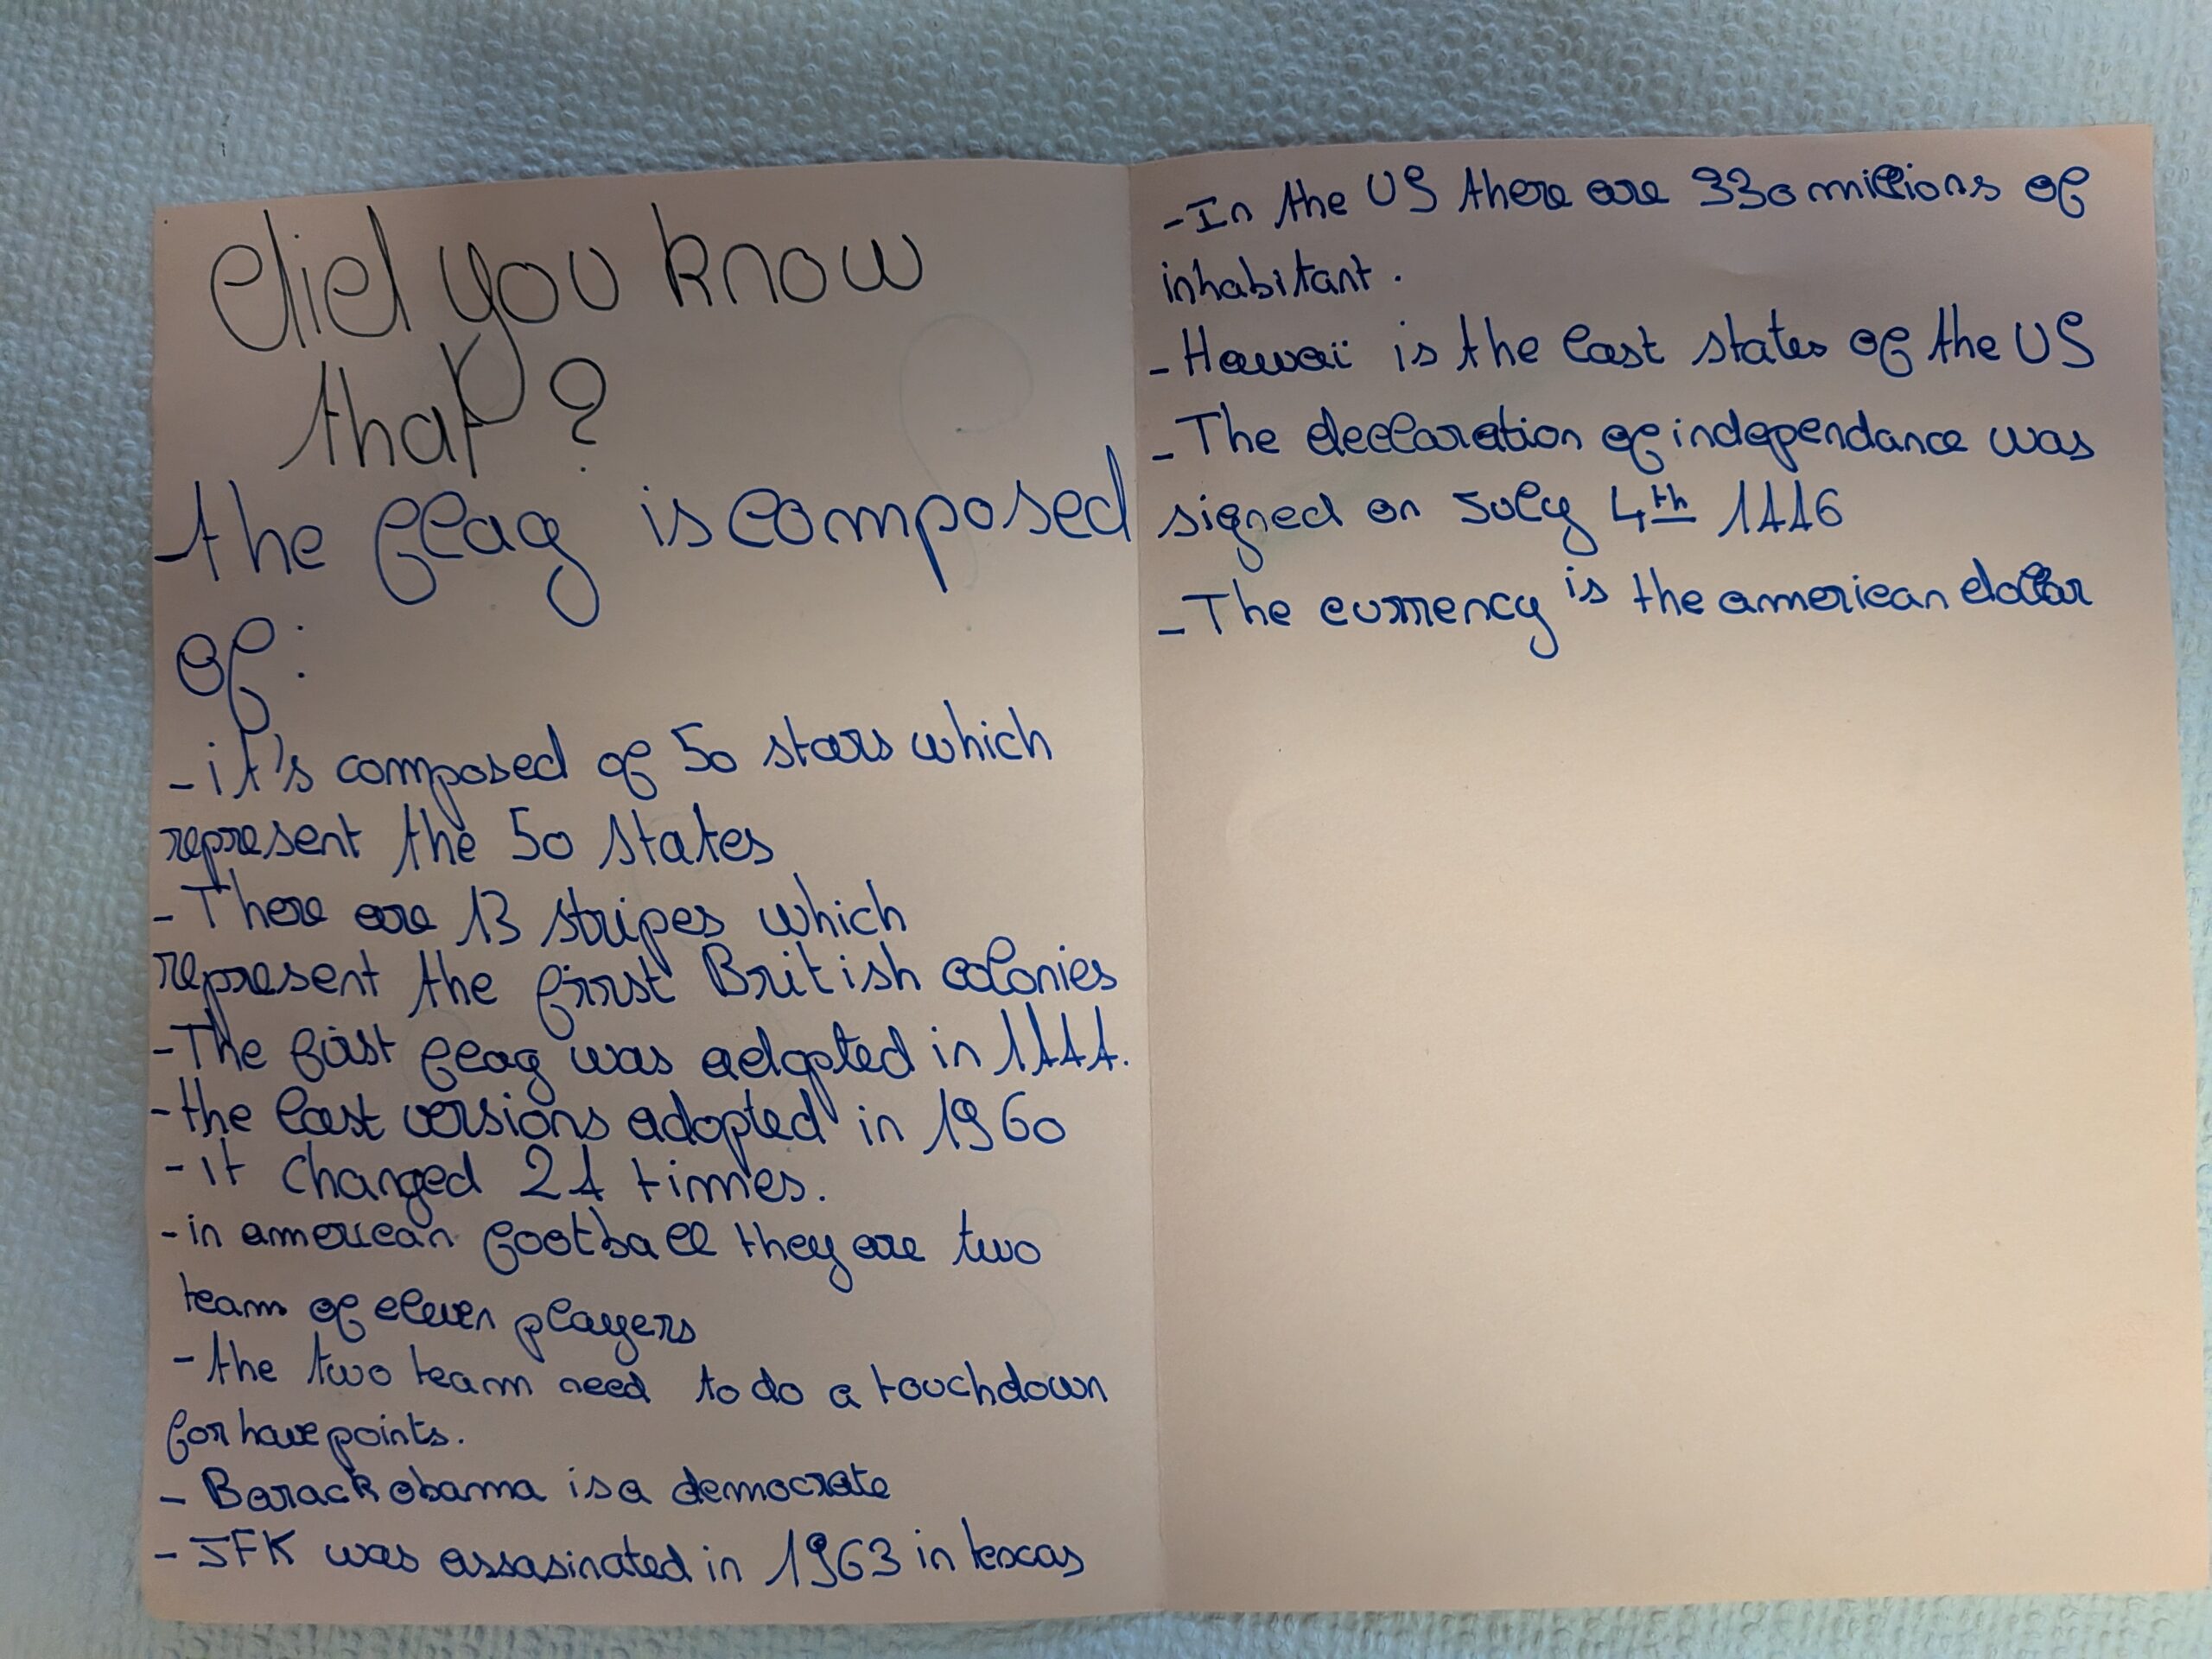 did you know
that ?
the flag is composed
of :
- it's composed of 50 stars which
represent the 50 states
- There are 13 stripes which
represent the first British colonies
- The first flag was adopted in 1777.
- the last versions adopted in 1960
- it changed 27 times.
- in american football they are two
team of eleven players
- the two team need to do a touchdown
for have points.
- Barack obama is a democrate
- JFK was assasinated in 1963 in texas
- In the US there are 330 millions of
inhabitant.
- Hawaï is the last states of the US
- The declaration of independance was
signed on July 4th 1776
- The currency is the american dollar